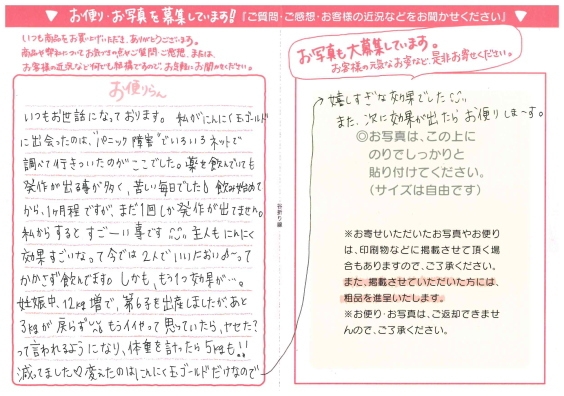 ▼ お便り・お写真を募集しています!! 『ご質問・ご感想・お客様の近況などをお聞かせください』 ▼
いつも商品をお買上げいただき、ありがとうございます。
商品や弊社についてお気づきの点やご質問・ご感想、または、
お客様の近況など何でも結構ですので、お気軽にお聞かせください。
お便りらん
いつもお世話になっております。私がにんにく玉ゴールド
に出会ったのは、"パニック障害"でいろいろネットで
調べて行きついたのがここでした。薬を飲んでいても
発作が出る事が多く、苦しい毎日でした 飲み始めて
から、1ヶ月程ですが、まだ1回しか発作が出てません。
私からするとすごーい事です 主人もにんにく
効果すごいなって今では2人でいいだおいきって
かかさず飲んでます。しかも、もう1つ効果が…。
妊娠中、12kg増で、第6子を出産しましたがあと
3kgが戻らず もうイイやって思っていたら、ヤセた?
って言われるようになり、体重を計ったら5kgも!!
減ってました 変えたのはにんにく玉ゴールドだけなので
谷折り線
お写真も大募集しています。
お客様の元気なお姿など、是非お寄せください。
嬉しすぎな効果でした
また、次に効果が出たらお便りしまーす。
◎お写真は、この上に
のりでしっかりと
貼り付けてください。
(サイズは自由です)
※お寄せいただいたお写真やお便り
は、印刷物などに掲載させて頂く場
合もありますので、ご了承ください。
また、掲載させていただいた方には、
粗品を進呈いたします。
※お便り・お写真は、ご返却できませ
んので、ご了承ください。